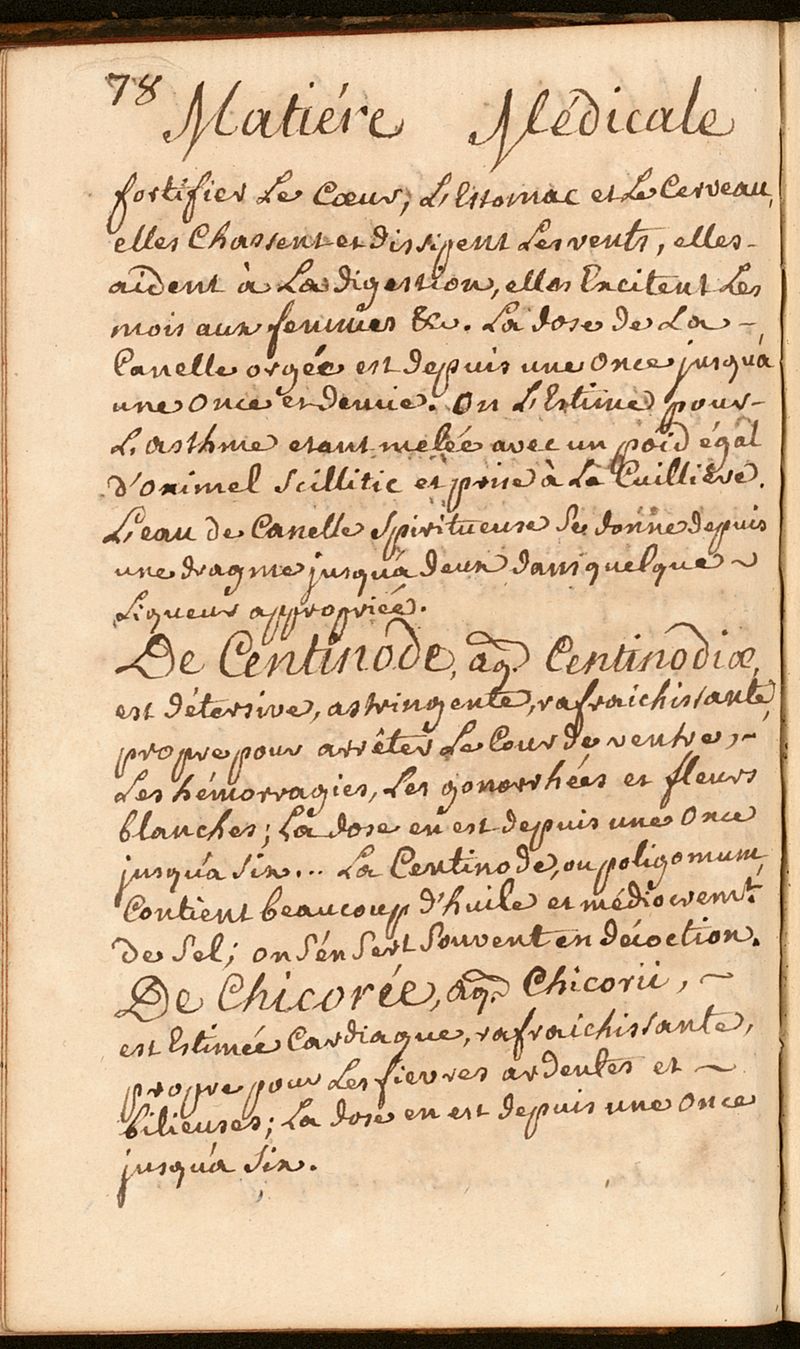 78
Matiére Médicale
fortifier Le Cœur, L'Estomac et Le Cerveau,
elles Chassent et dissipent Les vents, elles-
aident à La digestion, elles Excitent Les
mois aux femmes &c. La dose de La -
Canelle orgée est depuis une Once jusqu'à
une Once et demie. On L'Estime pour-
L'asthme etant melée avec un poid égal
d'oximel Scillitic et prise à La Cuilliére.
L'eau de Canelle Spiritueuse Se donne depuis
une dragme jusqu'a deux dans quelque ~
Liqueur appropriée.
De Centinode, aq. Centinodiæ,
est détersive, astringente, rafraichissante,
propre pour arrêter Le Cour de ventre, ~
Les hémorragies, Les gonorrhées et fleurs
blanches; La dose en est depuis une Once
jusqu'a Six... La Centinode, ou poligomum,
Contient beaucoup d'huile et médiocrem.t
de Sel; on S'én Sert Souvent en décoction.
De Chicorée, aq. Chicorii, ~
est Estimée Cardiaque, rafraichissante,
propre pour Les fievres ardentes et ~
bilieuses; La dose en est depuis une Once
jusqu'a Six.